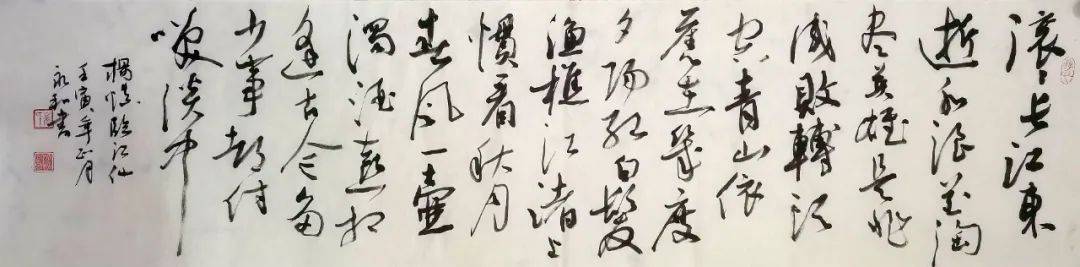 滚滚长江东
逝水浪花淘
尽英雄是非
成败轉头
空青山依
舊在幾度
夕阳红白髮
渔樵江渚上
惯看秋月
春风一壶
濁酒喜相
逢古今多
少事都付
笑谈中
楊慎臨江仙
壬寅年正月
永和书